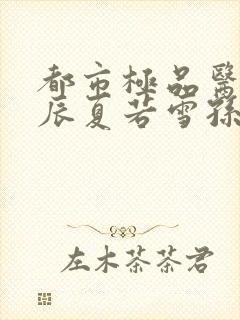 都市極品醫
辰夏若雪孫
左木茶茶君